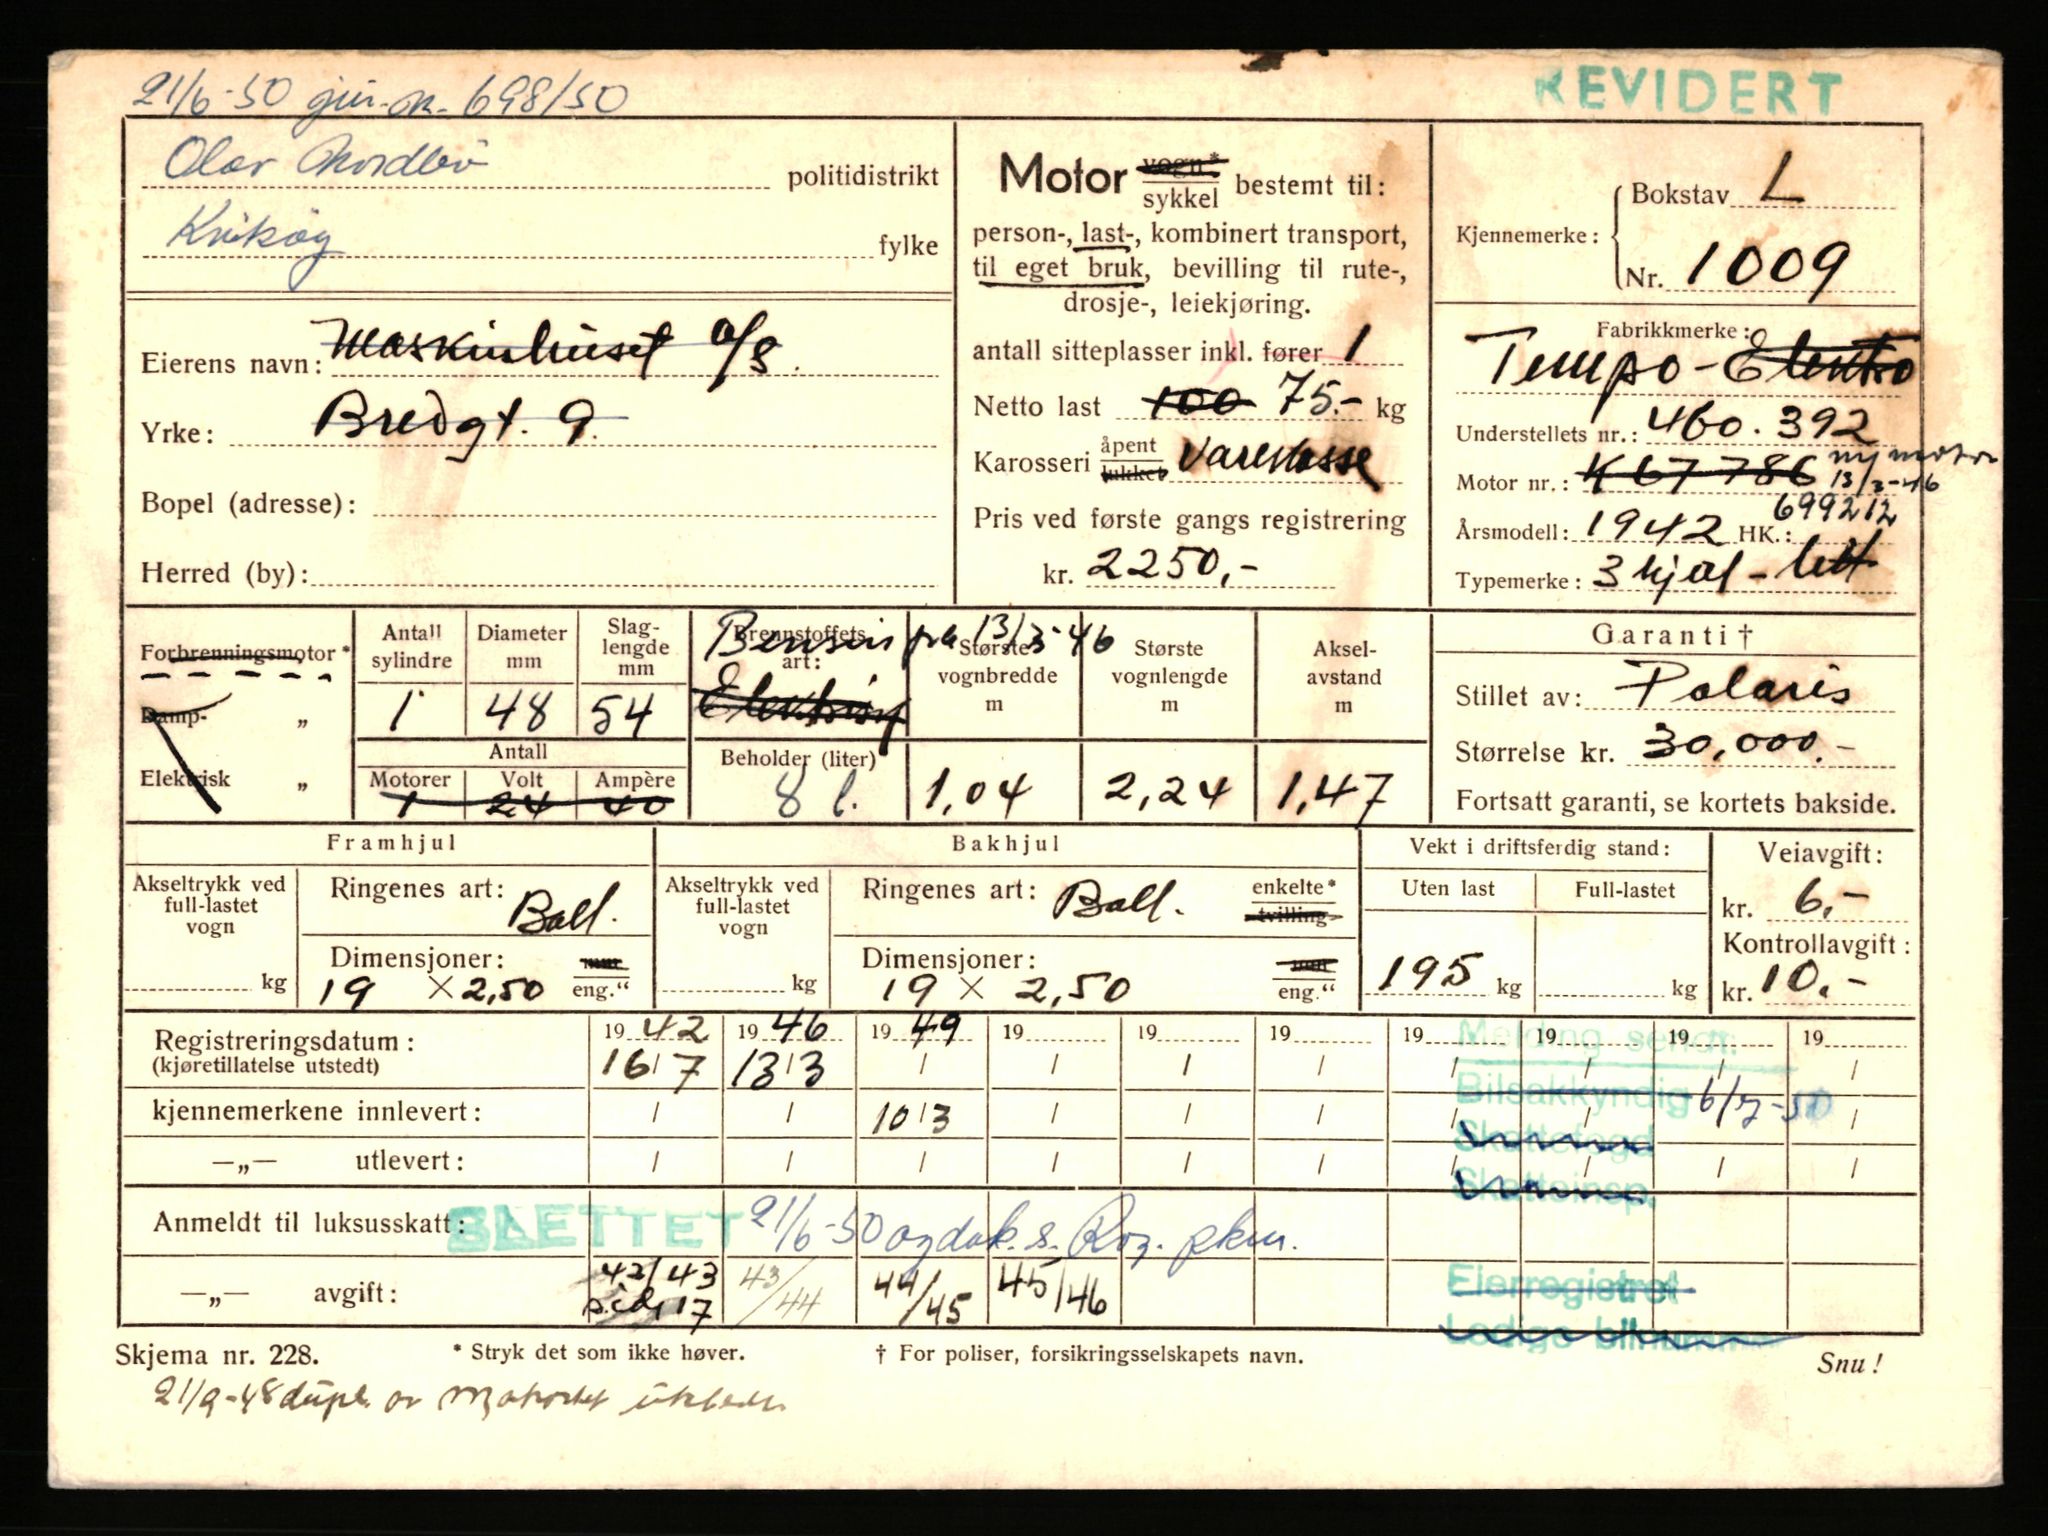 21/6-50 gjen.ok. 698/50
REVIDERT
Olav Nordbø politidistrikt
fylke
Eierens navn: Maskinhuset a/s.
Yrke: Bredgt. 9.
Bopel (adresse):
Herred (by):
Motor vogn*
sykkel bestemt til:
person-, last-, kombinert transport,
til eget bruk, bevilling til rute-,
drosje-, leiekjøring.
antall sitteplasser inkl. fører 1
Netto last 100 75.- kg
Karosseri åpent
lukket varekasse
Pris ved første gangs registrering
kr. 2250,-
Kjennemerke: Bokstav L
Nr. 1009
Fabrikkmerke:
Tempo - Elektro
Understellets nr.: 460.392
Motor nr.: K 67 786 ny motor
13/3-46
699212
Årsmodell: 1942 HK.:
Typemerke: 3 hjul - lett
Forbrenningsmotor*
Damp- „
Elektrisk „
Antall sylindre
1
Diameter mm
48
Slag-lengde mm
54
Antall
Motorer Volt Ampère
1 24 40
Brennstoffets art:
Bensin fra 13/3-46
Elektrisk
Beholder (liter)
8 l.
Største vognbredde m
1,04
Største vognlengde m
2,24
Aksel-avstand m
1,47
Garanti †
Stillet av: Polaris
Størrelse kr. 30,000.-
Fortsatt garanti, se kortets bakside.
Framhjul
Akseltrykk ved full-lastet vogn
kg
Ringenes art: Ball.
Dimensjoner: mm
19 × 2,50 eng.“
Bakhjul
Akseltrykk ved full-lastet vogn
kg
Ringenes art: Ball. enkelte*
tvilling
Dimensjoner: mm
19 × 2,50 eng.“
Vekt i driftsferdig stand:
Uten last Full-lastet
195 kg kg
Veiavgift:
kr. 6,-
Kontrollavgift:
kr. 10.-
Registreringsdatum: 19 42 19 46 19 49 19 19 19 19 19 19 19
(kjøretillatelse utstedt) 16/7 13/3 / / / / / / / /
kjennemerkene innlevert: / / 10/3 / / / / / / /
—„— utlevert: / / / / / / / / / /
Melding sendt:
Bilsakkyndig 6/7-50
Skattefogd
Skatteinsp.
Eierregistret
Anmeldt til luksusskatt: SLETTET 21/6-50
—„— avgift: 42/43 43/44 44/45 45/46
sid 17
Skjema nr. 228. * Stryk det som ikke høver. † For poliser, forsikringsselskapets navn. Snu!
21/9-48 dupl. av